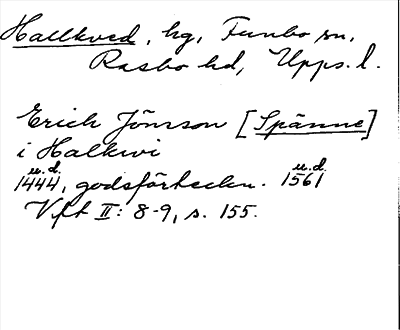 Hallkved, hg, Funbo sn,
Rasbo hd, Upps. l.
Erich Jönsson [Spänne]
i Halkwi
u.d. u.d.
1444, godsförteckn. 1561
Vft II: 8-9, s. 155.